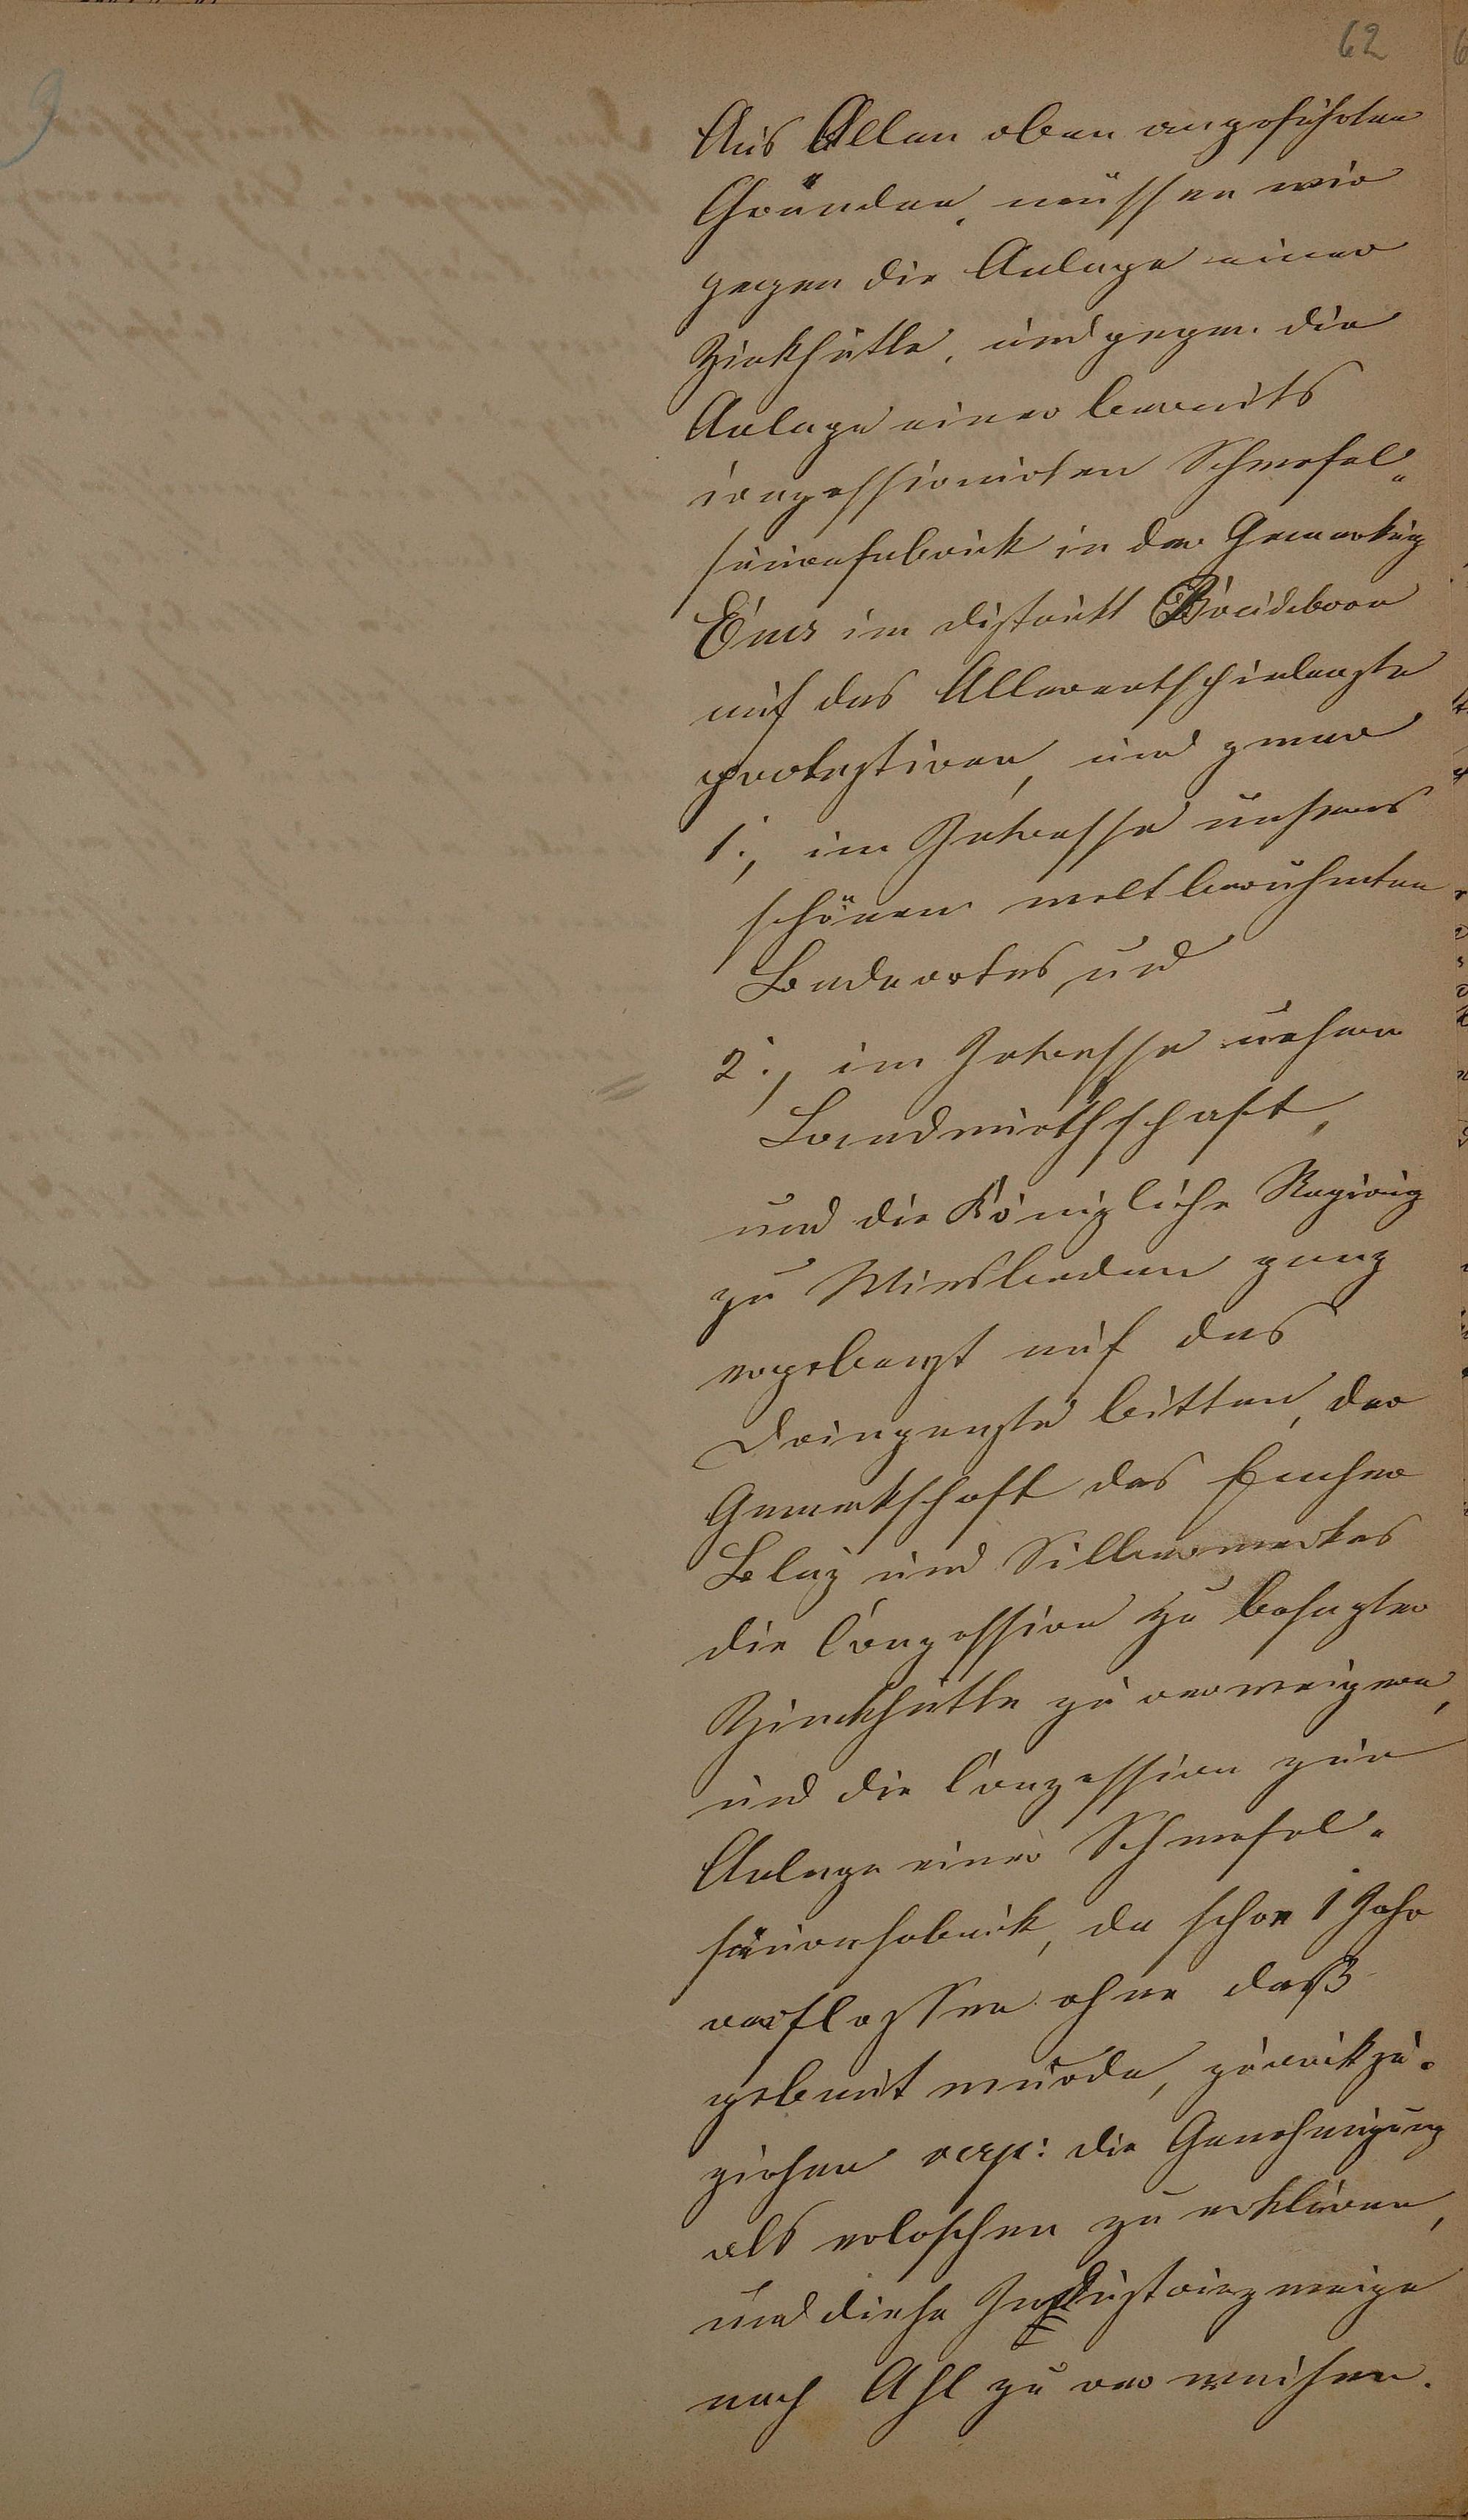 62
Aus Allen oben angeführten
Gründen, müssen wir
gegen die Anlage einer
Zinkhütte, und gegen die
Anlage einer bereits
conzessionirten Schwefel-
säurefabrick in der Gemarkung
Ems im Distrikt
auf das Allerentschiedenste
protestiren, und zwar
1., im Interesse unseres
schönen weltberühmten
Badeortes und
2., im Interesse unserer
Landwirthschaft,
und die Königliche Regirung
zu Wiesbaden ganz
ergebenst auf das
Dringenste bitten, der
Gewerkschaft des Emser
Blei und Silberwerkes
die Conzession zu besagter
Zinkhütte zu verweigern,
und die Conzession zur
Anlage einer Schwefel-
säurenfabrik, da schon 1 Jahr
verflossen ohne daß
gebaut wurde, zurückzu-
ziehen resp: die Genehmigung
als erloschen zu erklären,
und diese Industriezweige
nach Ahl zu verweisen.